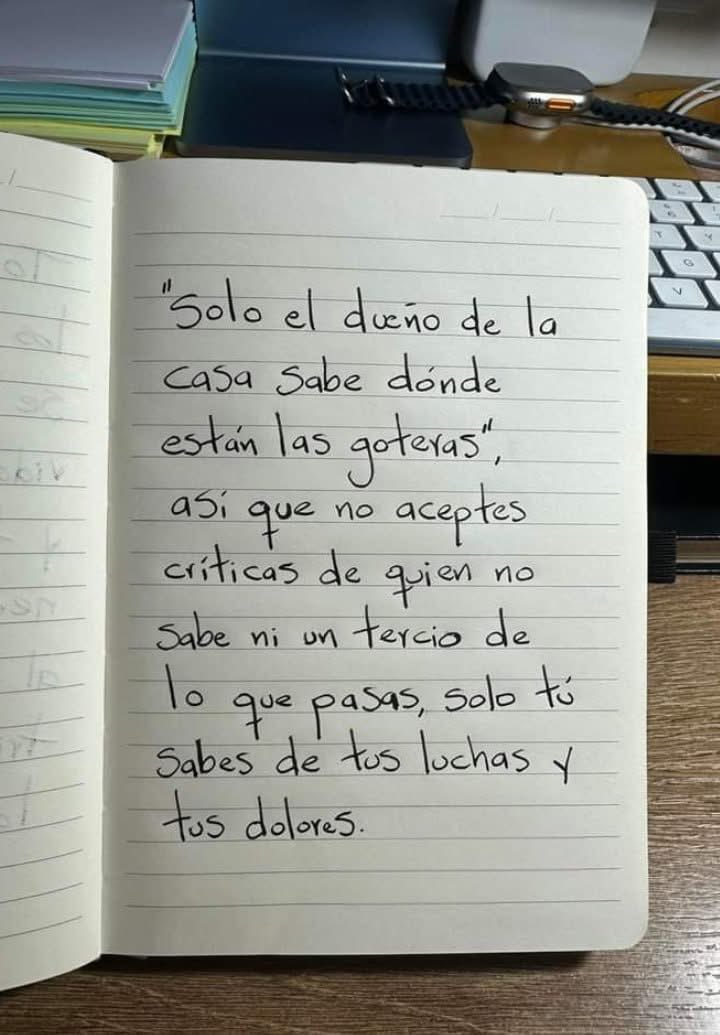 "Solo el dueño de la
casa sabe dónde
están las goteras",
así que no aceptes
críticas de quien no
sabe ni un tercio de
lo que pasas, solo tú
sabes de tus luchas y
tus dolores.